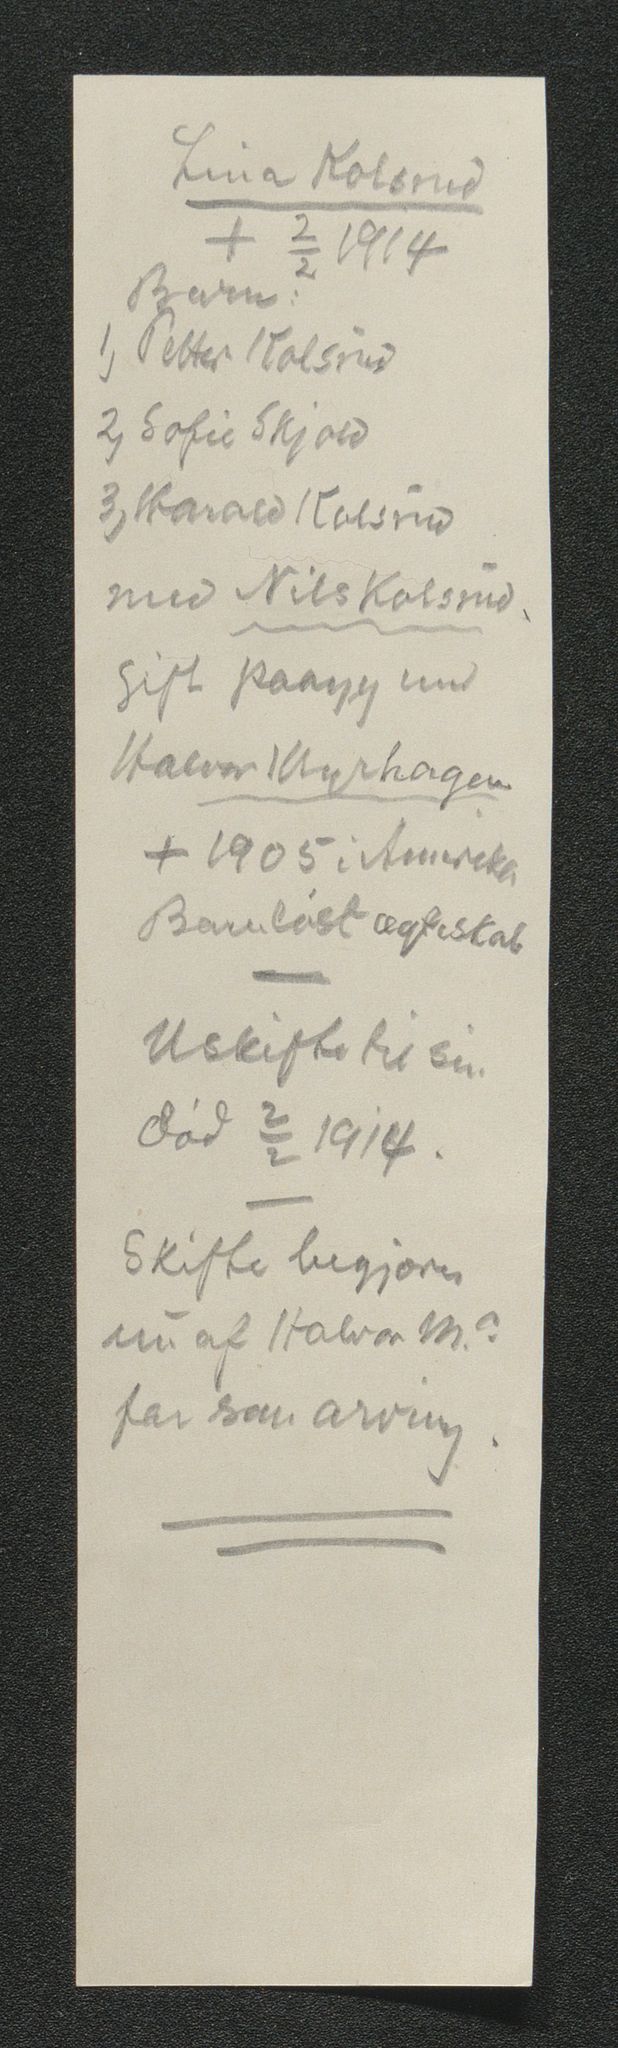 Lina Kolsrud
+ 2/2 1914
Barn:
1, Petter Kolsrud
2, Sofie Skjold
3, Harald Kolsrud
med Nils Kolsrud.
Gift paany med
Halvor Myrhagen
+ 1905 i Amerika
Barnløst ægteskab
Uskifte til sin
død 2/2 1914.
Skifte begjæres
nu af Halvor M.s
far som arving.